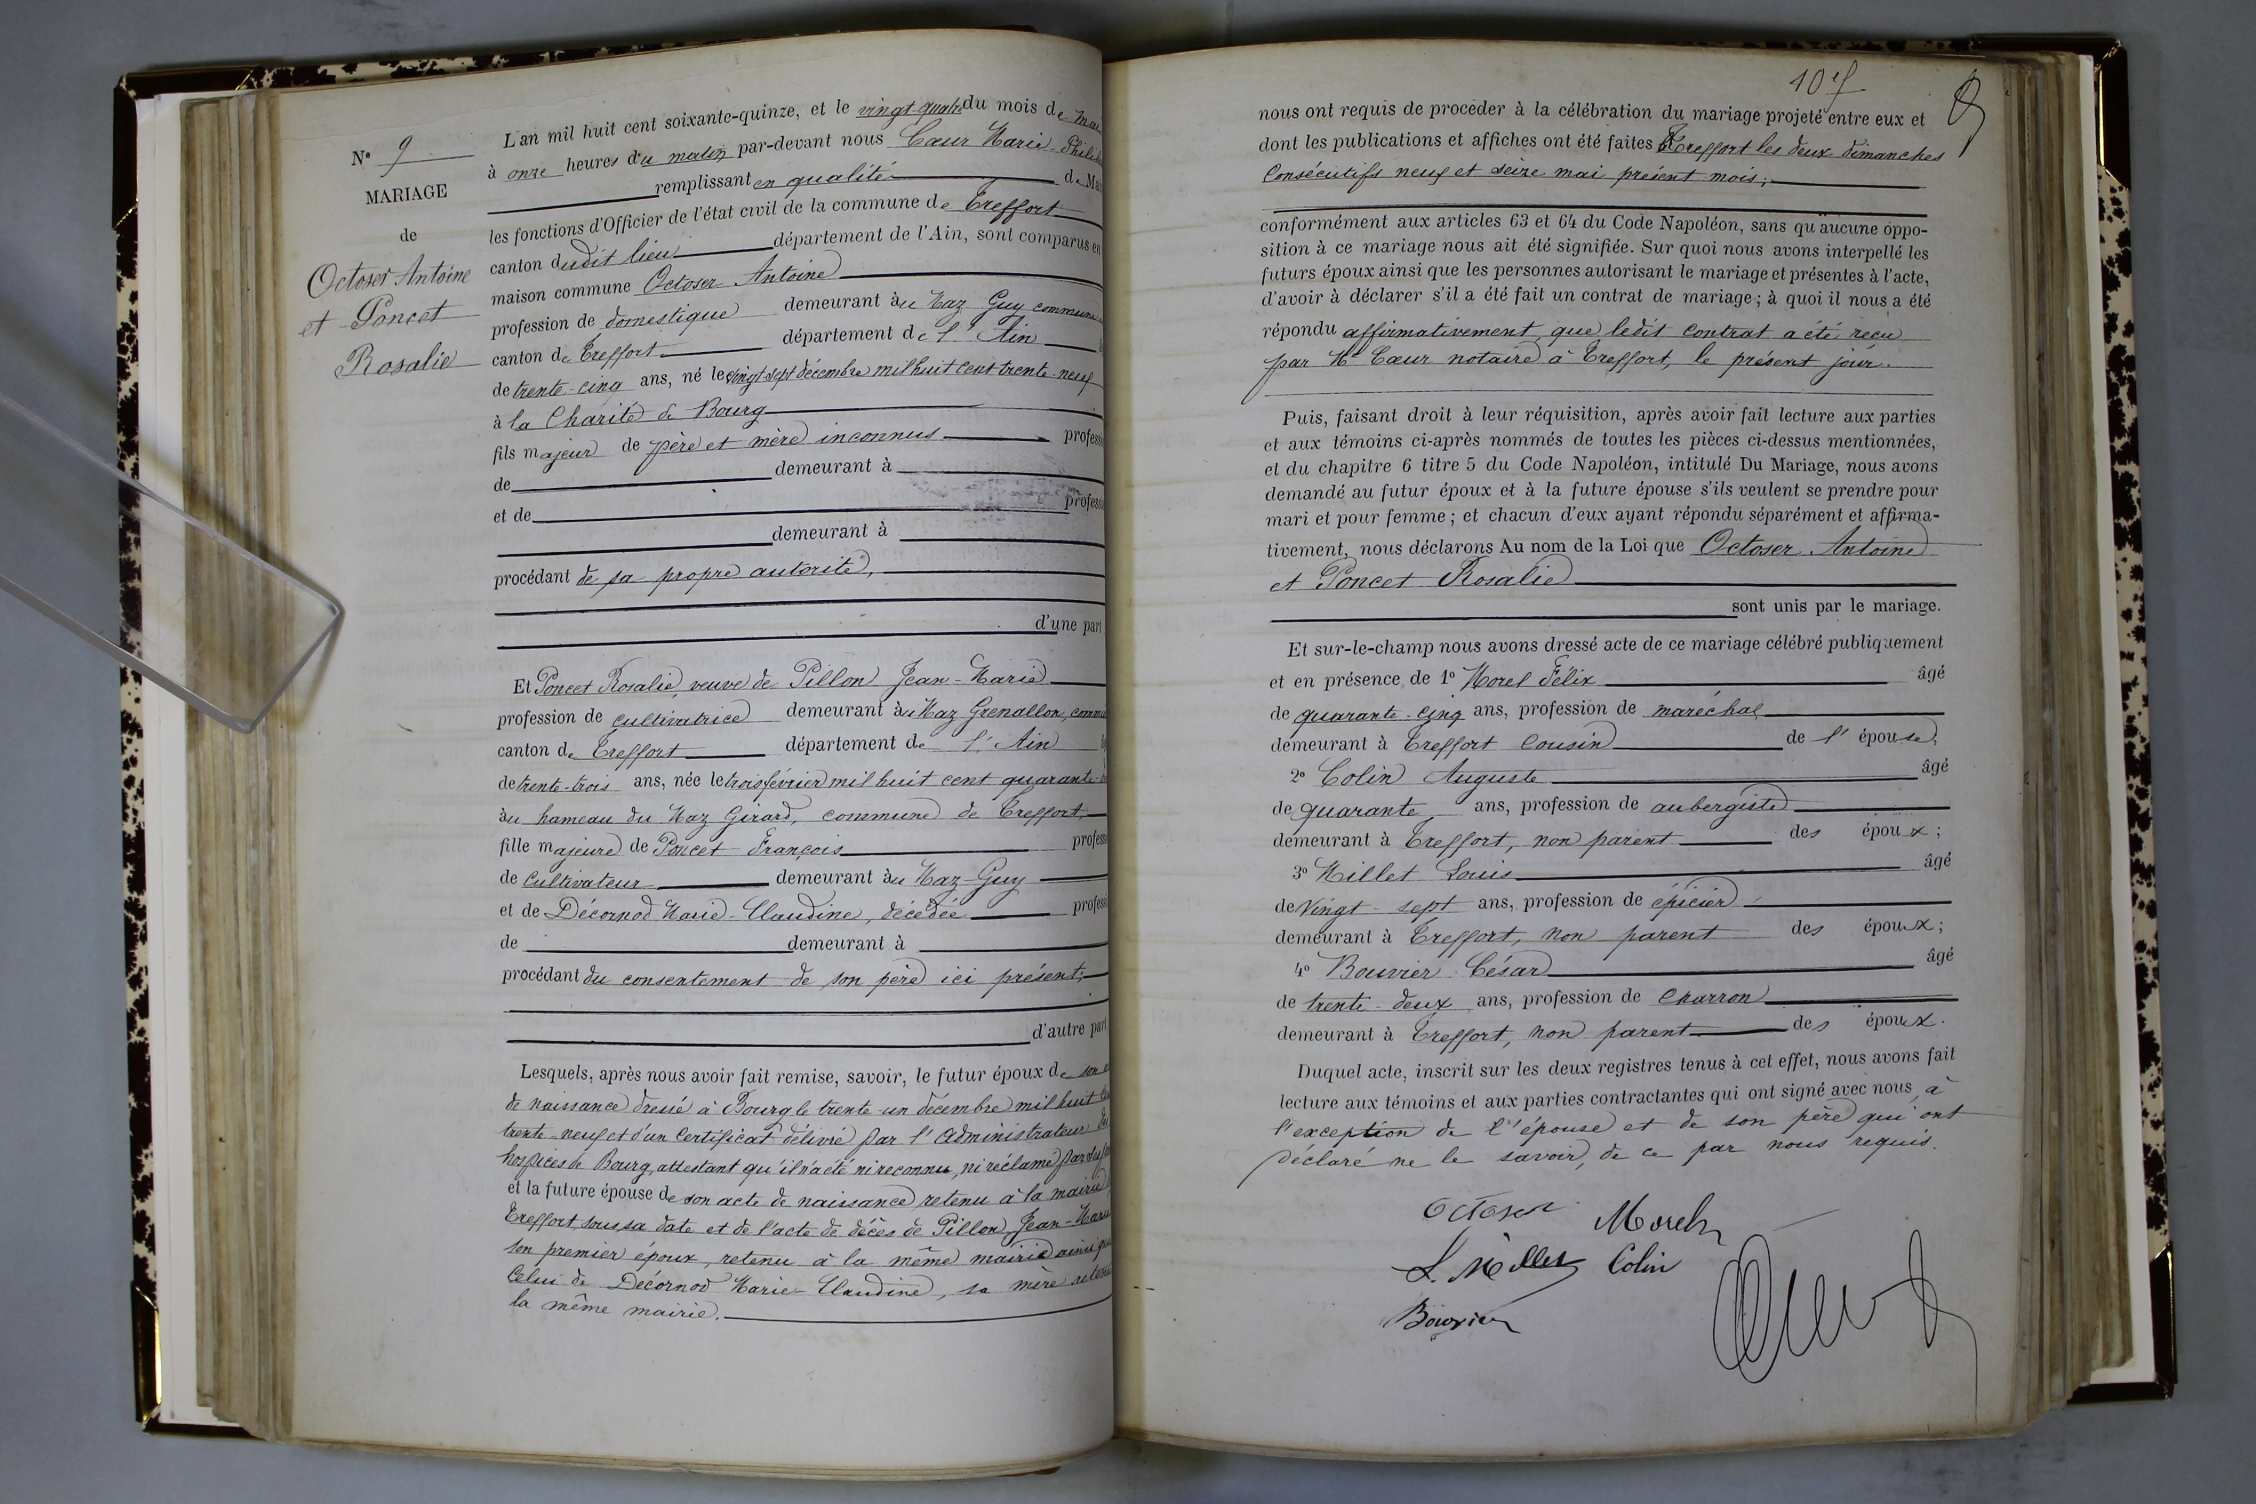 N° 9
MARIAGE
de
Octoser Antoine
et Poncet
Rosalie
L'an mil huit cent soixante-quinze, et le vingt quatre du mois de Mai
à onze heures du matin par-devant nous Cœur Marie-
remplissant en qualité de
les fonctions d'Officier de l'état civil de la commune de Treffort
canton dudit lieu département de l'Ain, sont comparus en
maison commune Octoser Antoine
profession de domestique demeurant au Maz Guy commune
canton de Treffort département de l'Ain
de trente-cinq ans, né le vingt sept décembre mil huit cent trente-neuf
à la Charité de Bourg
fils majeur de père et mère inconnus
de demeurant à
et de
demeurant à
procédant de sa propre autorité,
d'une part
Et Poncet Rosalie, veuve de Pillon Jean-Marie
profession de cultivatrice demeurant au Maz Grenallon,
canton de Treffort département de l'Ain
de trente-trois ans, née le trois février mil huit cent quarante-
au hameau du Maz Girard, commune de Treffort,
fille majeure de Poncet François
de cultivateur demeurant au Maz-Guy
et de Décornod Marie-Claudine, décédée
de demeurant à
procédant du consentement de son père ici présent;
d'autre part
Lesquels, après nous avoir fait remise, savoir, le futur époux de son
de naissance dressé à Bourg le trente-un décembre mil huit
trente-neuf et d'un certificat délivré par l'administrateur
hospices de Bourg, attestant qu'il n'a été ni reconnu, ni réclamé par
et la future épouse de son acte de naissance retenu à la mairie
Treffort, sous sa date et de l'acte de décès de Pillon Jean-Marie
son premier époux, retenu à la même mairie ainsi que
Celui de Décornod Marie-Claudine, sa mère
la même mairie.
nous ont requis de procéder à la célébration du mariage projeté entre eux et
dont les publications et affiches ont été faites à Treffort les deux dimanches
Consécutifs neuf et seize mai présent mois;
conformément aux articles 63 et 64 du Code Napoléon, sans qu'aucune oppo-
sition à ce mariage nous ait été signifiée. Sur quoi nous avons interpellé les
futurs époux ainsi que les personnes autorisant le mariage et présentes à l'acte,
d'avoir à déclarer s'il a été fait un contrat de mariage; à quoi il nous a été
répondu affirmativement que ledit contrat a été reçu
par Me Cœur notaire à Treffort, le présent jour.
Puis, faisant droit à leur réquisition, après avoir fait lecture aux parties
et aux témoins ci-après nommés de toutes les pièces ci-dessus mentionnées,
et du chapitre 6 titre 5 du Code Napoléon, intitulé Du Mariage, nous avons
demandé au futur époux et à la future épouse s'ils veulent se prendre pour
mari et pour femme; et chacun d'eux ayant répondu séparément et affirma-
tivement, nous déclarons Au nom de la Loi que Octoser Antoine
et Poncet Rosalie
sont unis par le mariage.
Et sur-le-champ nous avons dressé acte de ce mariage célébré publiquement
et en présence de 1° Morel Félix âgé
de quarante-cinq ans, profession de maréchal
demeurant à Treffort Cousin de l'épouse,
2° Colin Auguste âgé
de quarante ans, profession de aubergiste
demeurant à Treffort, non parent des époux;
3° Millet Louis âgé
de Vingt-sept ans, profession de épicier
demeurant à Treffort, non parent des époux;
4° Bouvier César âgé
de trente-deux ans, profession de Charron
demeurant à Treffort, non parent des époux.
Duquel acte, inscrit sur les deux registres tenus à cet effet, nous avons fait
lecture aux témoins et aux parties contractantes qui ont signé avec nous, à
l'exception de l'épouse et de son père qui ont
déclaré ne le savoir, de ce par nous requis.
Octoser Morel
L. Millet Colin
Bouvier